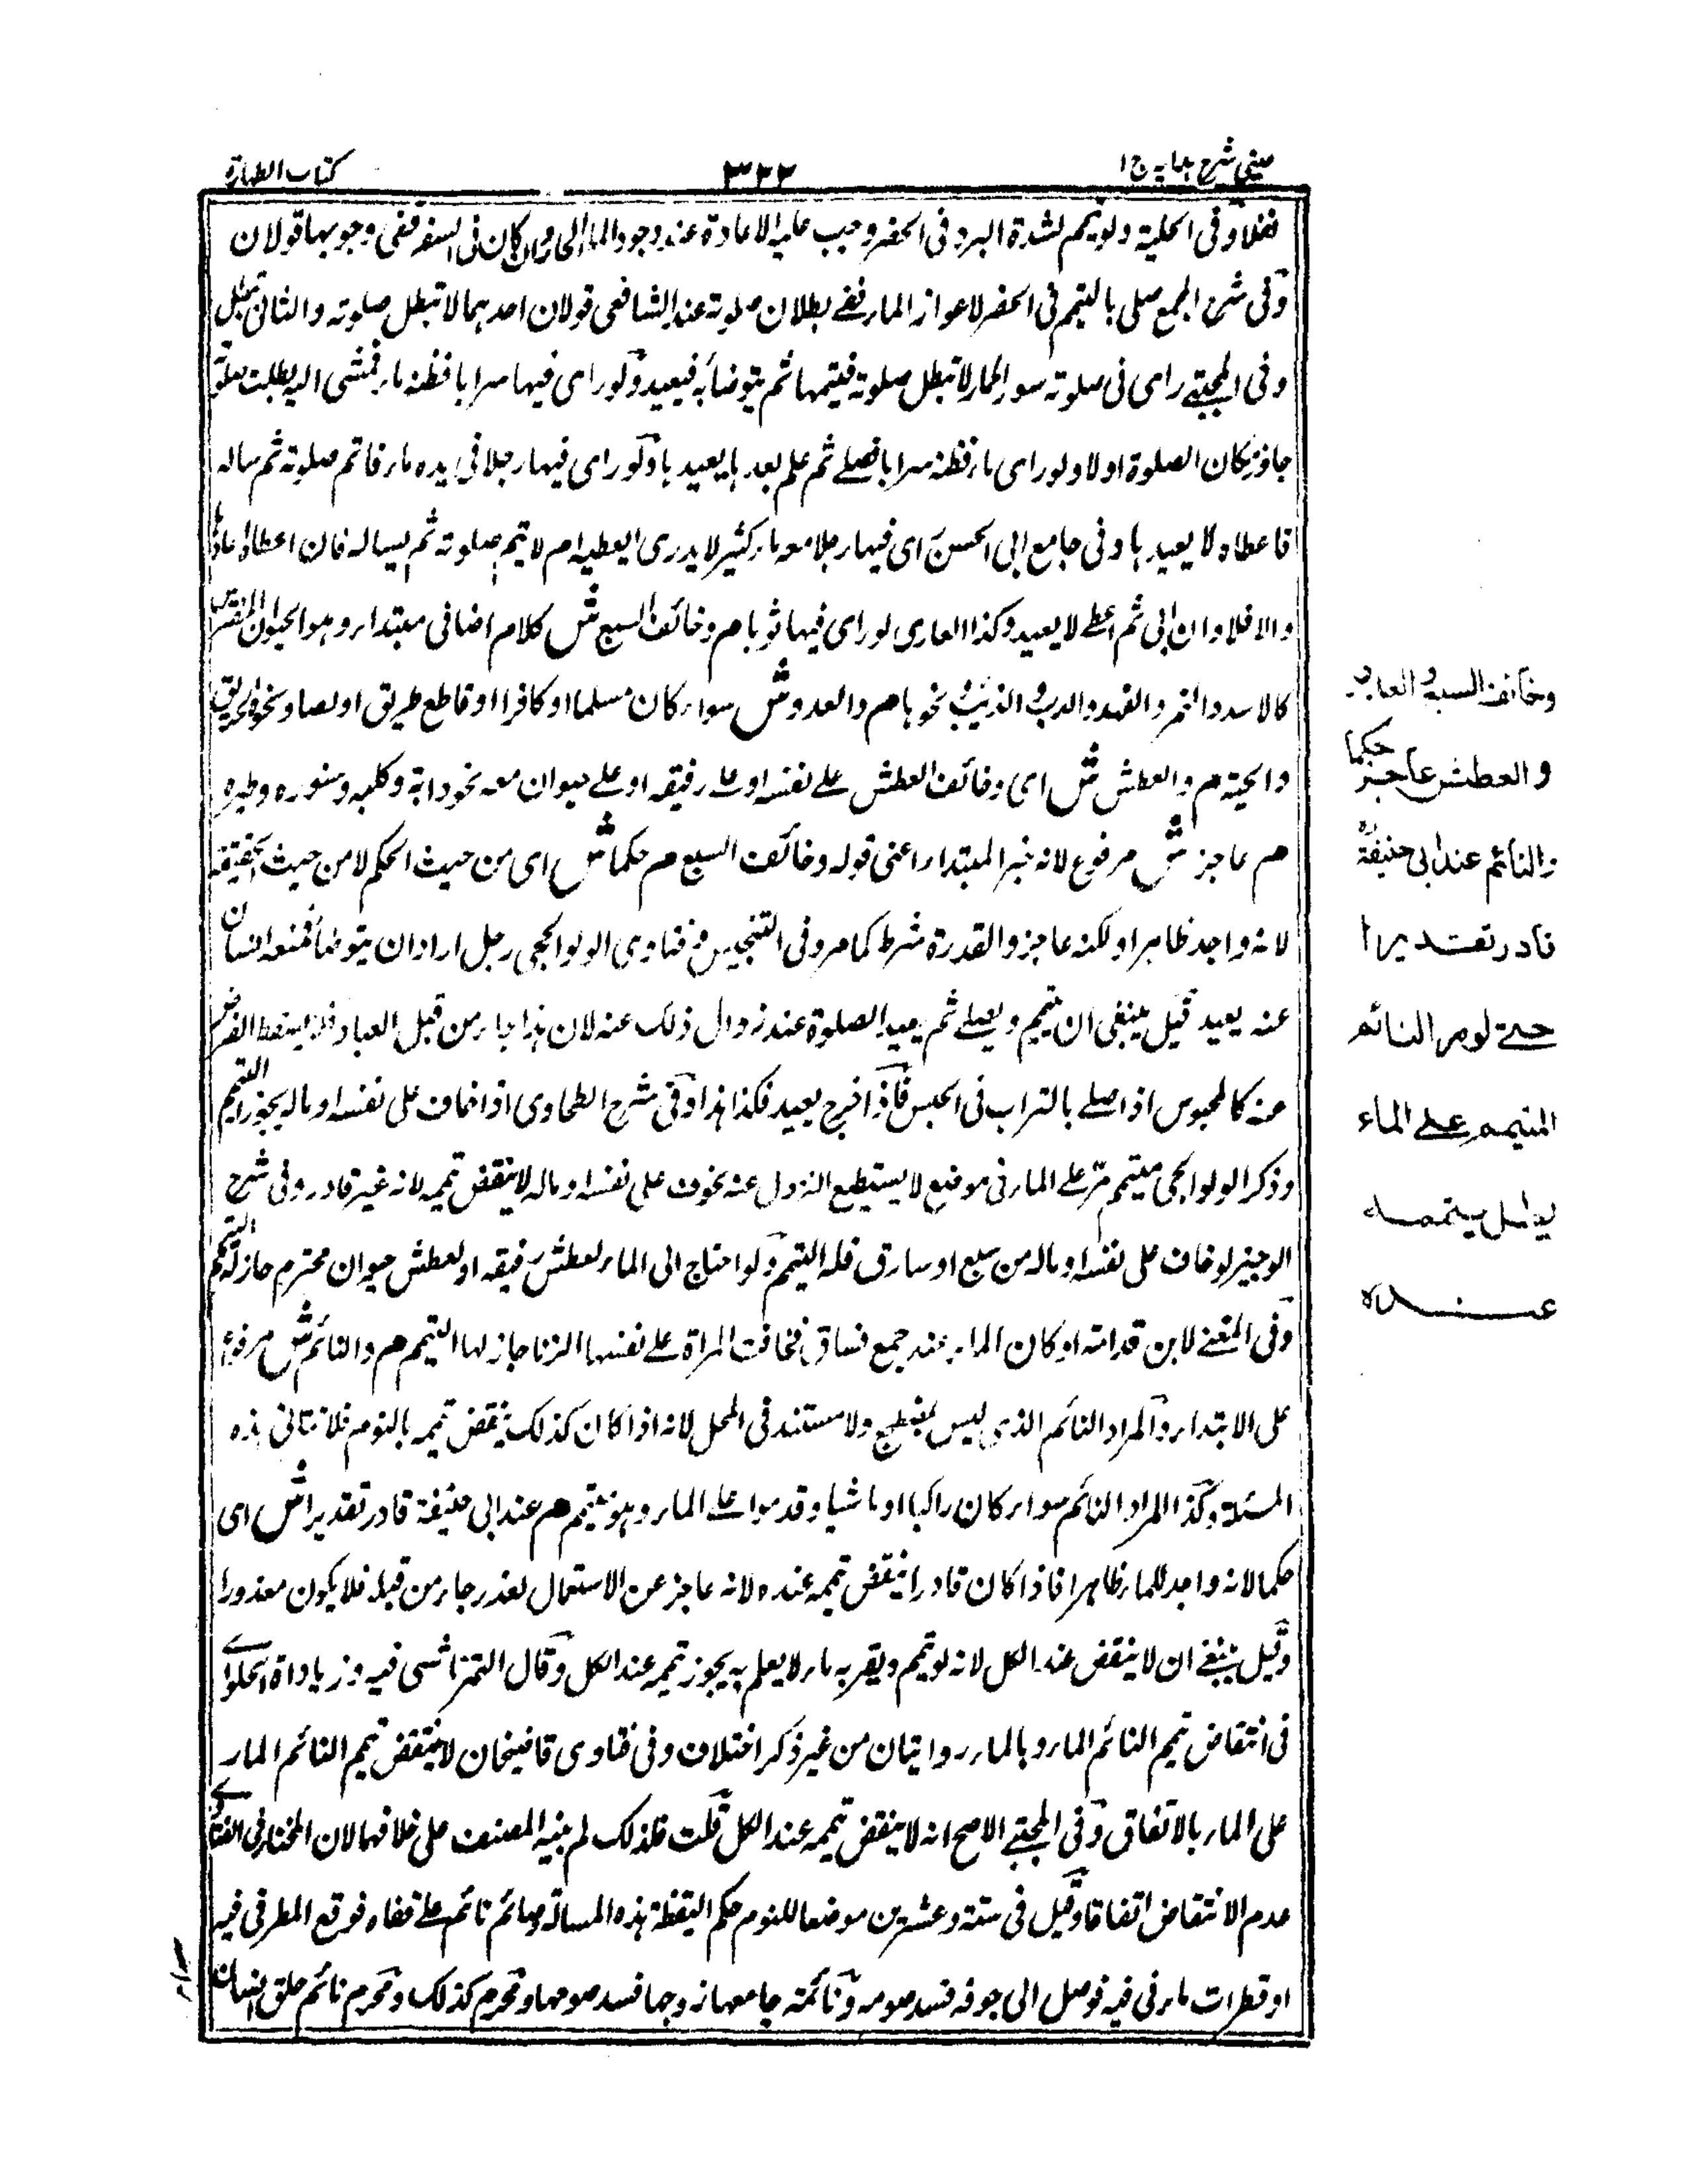 عيني شرح هدايه ج ١
٣٢٢
كتاب الطهارة
نفلا وفى الحلية ولو تيمم لشدة البرد فى الحضر وجب عليه الاعادة عند وجود الماء الحار وان كان فى السفر ففى وجوبها قولان
وفى شرح المجمع صلى بالتيمم فى الحضر لاعواز الماء ففى بطلان صلوته عند الشافعى قولان احدهما لا تبطل صلوته والثانى تبطل
وفى المجتبے راى فى صلوته سور الحمار لا تبطل صلوته فيتمها ثم يتوضا به فيعيد ولو راى فيها سرابا فظنه ماء فمشى اليه بطلت صلوته
جاوز مكان الصلوة اولا ولو راى ماء فظنه سرابا فصلے ثم علم بعدها يعيدها ولو راى فيها رجلا فى يده ماء فاتم صلوته ثم ساله
فاعطاه لا يعيدها وفى جامع ابى الحسن راى فيها رجلا معه ماء كثير لا يدرى ايعطيه ام لا يتم صلوته ثم يساله فان اعطاه اعاد
والا فلا وان ابى ثم اعطے لا يعيد وكذا العارى لو راى فيها ثوبا م وخائف السبع ش كلام اضافى مبتداء وهو الحيوان المفترس
كالاسد والنمر والفهد والدب والذئب ونحوها م والعدو ش سواء كان مسلما او كافرا او قاطع طريق او لصا ونحو الحريق
والحية م والعطش ش اى وخائف العطش علے نفسه او علے رفيقه او علے حيوان معه نحو دابته وكلبه وسنوره وطيره
م عاجز ش مرفوع لانه خبر المبتداء اعنى قوله وخائف السبع م حكما ش اى من حيث الحكم لا من حيث الحقيقة
لانه واجد ظاهرا ولكنه عاجز والقدرة شرط كما مر وفى التنجيس وفتاوى الولوالجى رجل اراد ان يتوضأ فمنعه انسان
عنه يعيد قيل ينبغى ان يتيمم ويصلے ثم يعيد الصلوة عند زوال ذلك عنه لان هذا جاء من قبل العباد فلا يسقط الفرض
عنه كالمحبوس اذا صلے بالتراب فى الحبس فاذا خرج يعيد فكذا هذا وفى شرح الطحاوى اذا خاف على نفسه او ماله يجوز له التيمم
وذكر الولوالجى متيمم مر علے الماء فى موضع لا يستطيع النزول عنه لخوف على نفسه او ماله لا ينتقض تيممه لانه غير قادر وفى شرح
الوجيز لو خاف على نفسه او ماله من سبع او سارق فله التيمم ولو احتاج الى الماء لعطش رفيقه او لعطش حيوان محترم جاز له التيمم
وفى المغنے لابن قدامة او كان الماء عند جمع فساق فخافت المراة علے نفسها الزنا جاز لها التيمم م والنائم ش مرفوع
على الابتداء والمراد النائم الذى ليس بمضطجع ولا مستند فى المحل لانه اذا كان كذلك ينتقض تيممه بالنوم فلا تتاتى هذه
المسئلة وكذا المراد النائم سواء كان راكبا او ماشيا وقد مر علے الماء وهو متيمم م عند ابى حنيفة قادر تقديرا ش اى
حكما لانه واجد للماء ظاهرا فاذا كان قادرا ينتقض تيممه عنده لانه عاجز عن الاستعمال لعذر جاء من قبله فلا يكون معذورا
وقيل ينبغے ان لا ينتقض عند الكل لانه لو تيمم وبقربه ماء لا يعلم به يجوز تيممه عند الكل وقال التمرتاشى فيه وزيادات الحلوانے
فى انتقاض تيمم النائم المار بالماء روايتان من غير ذكر اختلاف وفى فتاوى قاضيخان لا ينتقض تيمم النائم المار
على الماء بالاتفاق وفى المجتبے الاصح انه لا ينتقض تيممه عند الكل قلت فلذلك لم يبنه المصنف على خلافهما لان المختار فى الفتاوے
عدم الانتقاض اتفاقا وقيل فى ستة وعشرين موضعا للنوم حكم اليقظة هذه المسالة وصائم نائم علے قفاه فوقع المطر فى فيه
او قطرات ماء فى فيه فوصل الى جوفه فسد صومه ونائمة جامعها زوجها فسد صومها ومحرم كذلك ومحرم نائم حلق انسان
وخائف السبع والعدو
والعطش عاجز حكما
والنائم عند ابى حنيفة
قادر تقديرا
حتے لو مر النائم
المتيمم علے الماء
يبطل تيممه
عنده